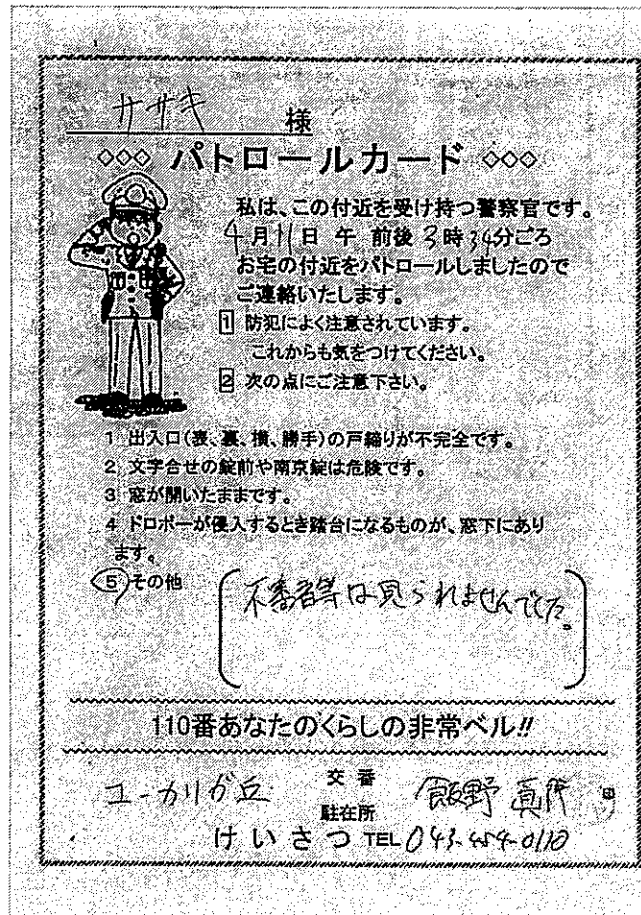 ササキ 様
◇◇◇ パトロールカード ◇◇◇
私は、この付近を受け持つ警察官です。
4月11日 午 前後 3時34分ごろ
お宅の付近をパトロールしましたので
ご連絡いたします。
1 防犯によく注意されています。
これからも気をつけてください。
2 次の点にご注意下さい。
1 出入口(表、裏、横、勝手)の戸締りが不完全です。
2 文字合せの錠前や南京錠は危険です。
3 窓が開いたままです。
4 ドロボーが侵入するとき踏台になるものが、窓下にあり
ます。
5 その他
不審者等は見られませんでした。
110番あなたのくらしの非常ベル!!
ユーカリが丘 交番 飯野
駐在所
けいさつ TEL 043-454-0110